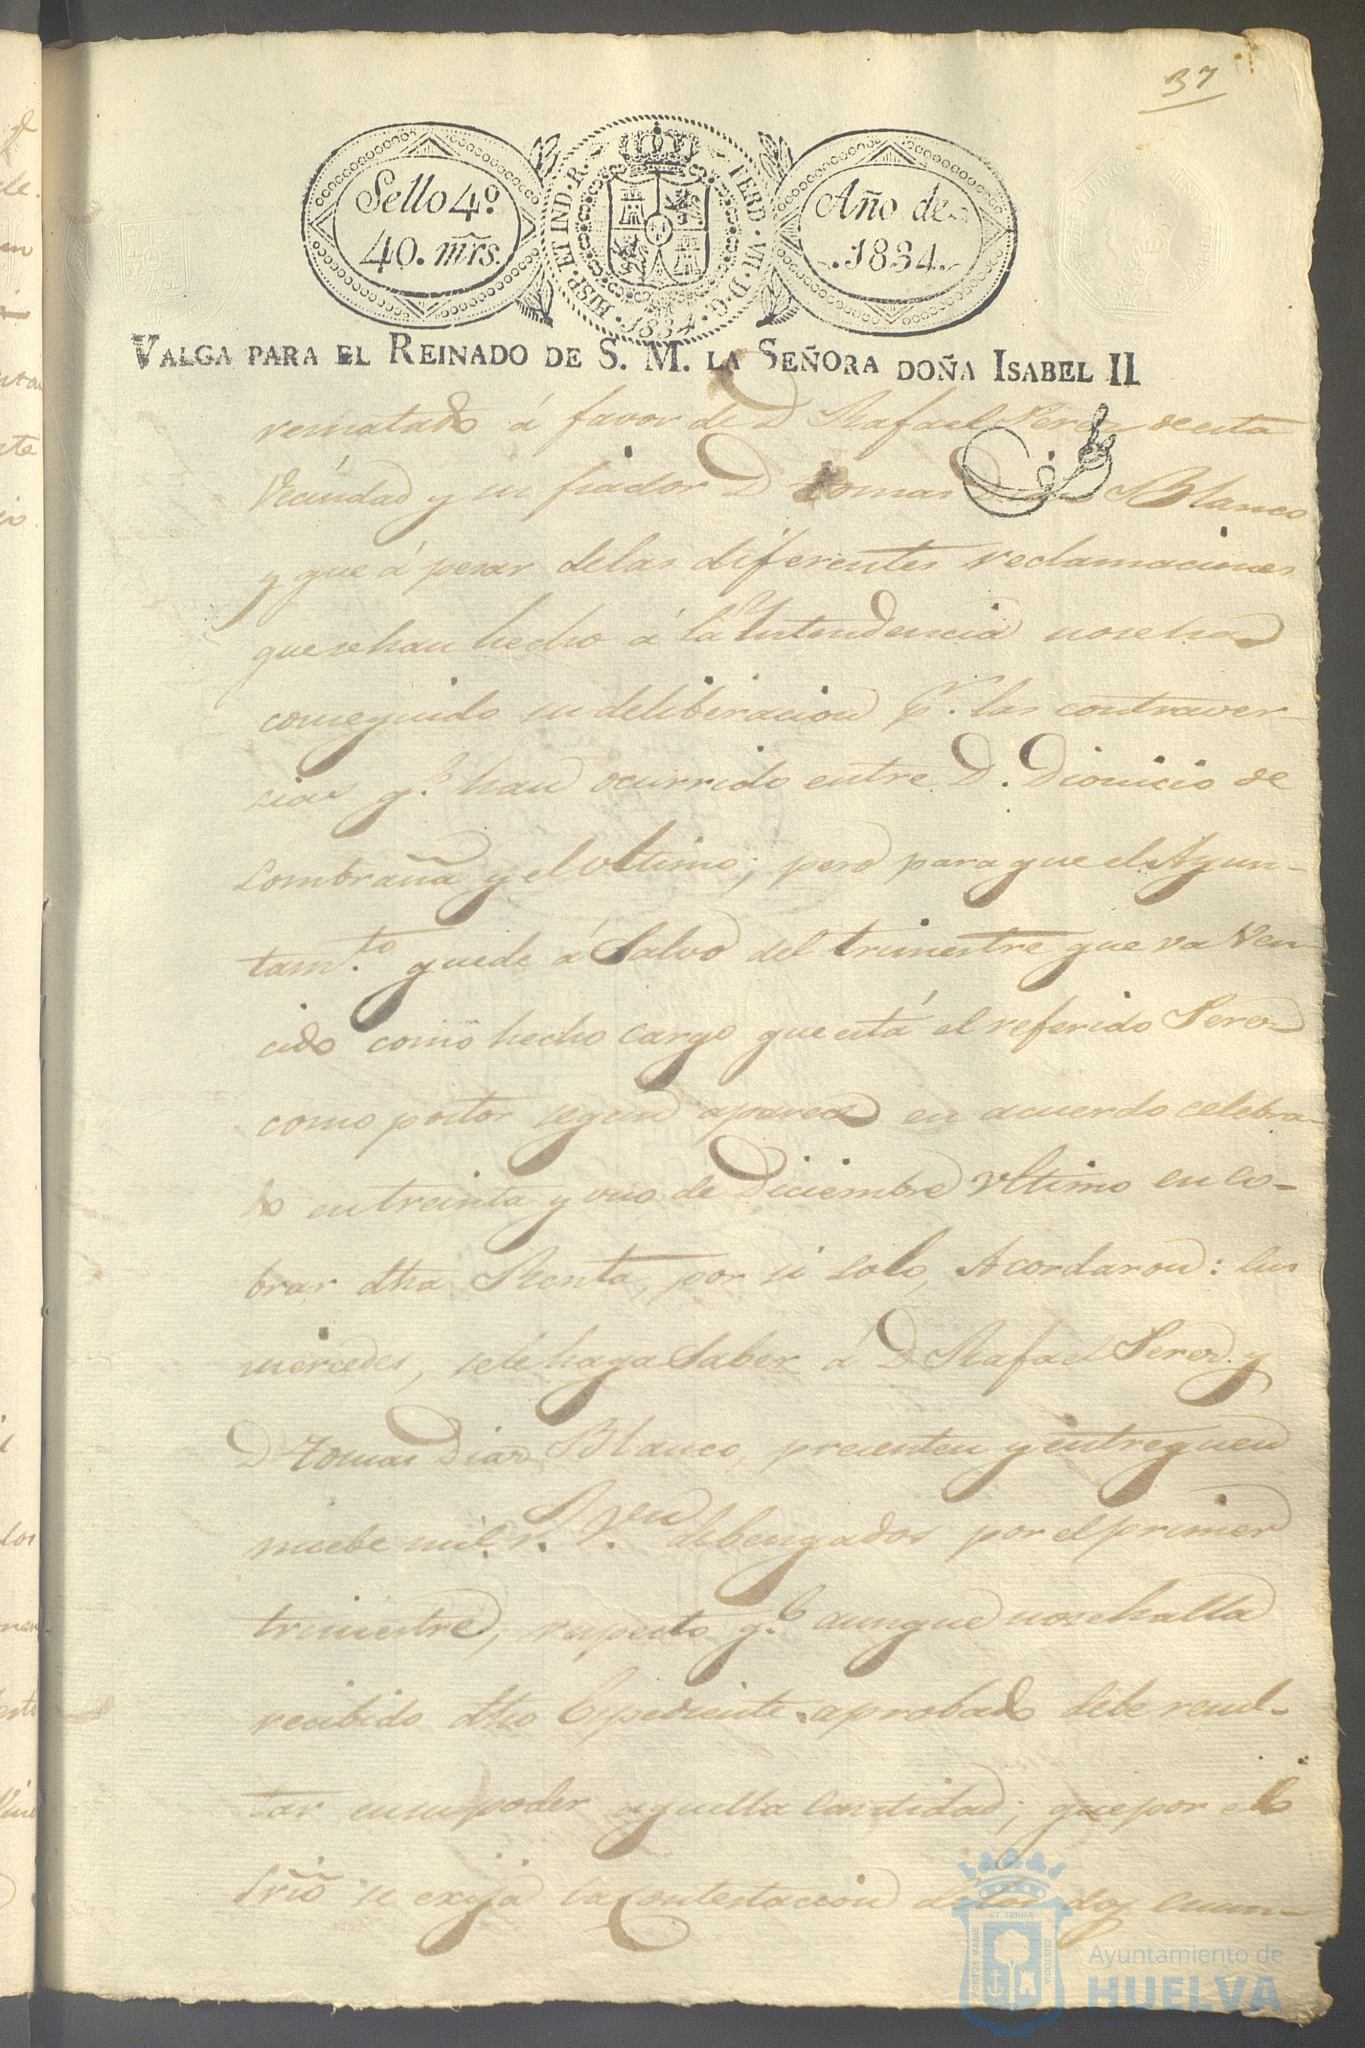 37
Sello 4º
40. mrs.
HISP. ET IND. R.
FERD. VII. D. G.
1834
Año de
1834.
VALGA PARA EL REINADO DE S. M. LA SEÑORA DOÑA ISABEL II
rematado á favor de D Rafael Perez de esta
Vecindad y su fiador D Tomas Blanco
y que á pesar delas diferentes reclamaciones
que se han hecho á la Yntendencia no se ha
conseguido su deliberacion Pr. las contraver-
cias qe. han ocurrido entre D. Dionicio de
Sombraña y el ultimo; pero para que el Ayun-
tamto. quede á Salvo del trimestre que va Ven-
cido como hecho cargo que está el referido Perez
como postor segun aparece en acuerdo celebra-
do en treinta y uno de Diciembre Ultimo en co-
brar dha Renta, por si solo, Acordaron: sus
mercedes, sele haga Saber á D Rafael Perez y
D Tomas Diaz Blanco precenten y entreguen
nuebe mil r. Ven. debengados por el primer
trimestre, respecto qe. aunque nose halla
recibido dho Espediente aprobado debe resul-
tar en su poder aquella Cantidad; que por el
Srio se exija la Contestacion de los dos cuan-
PORTUS MARIS ET TERRAE CUSTODIA
Ayuntamiento de
HUELVA